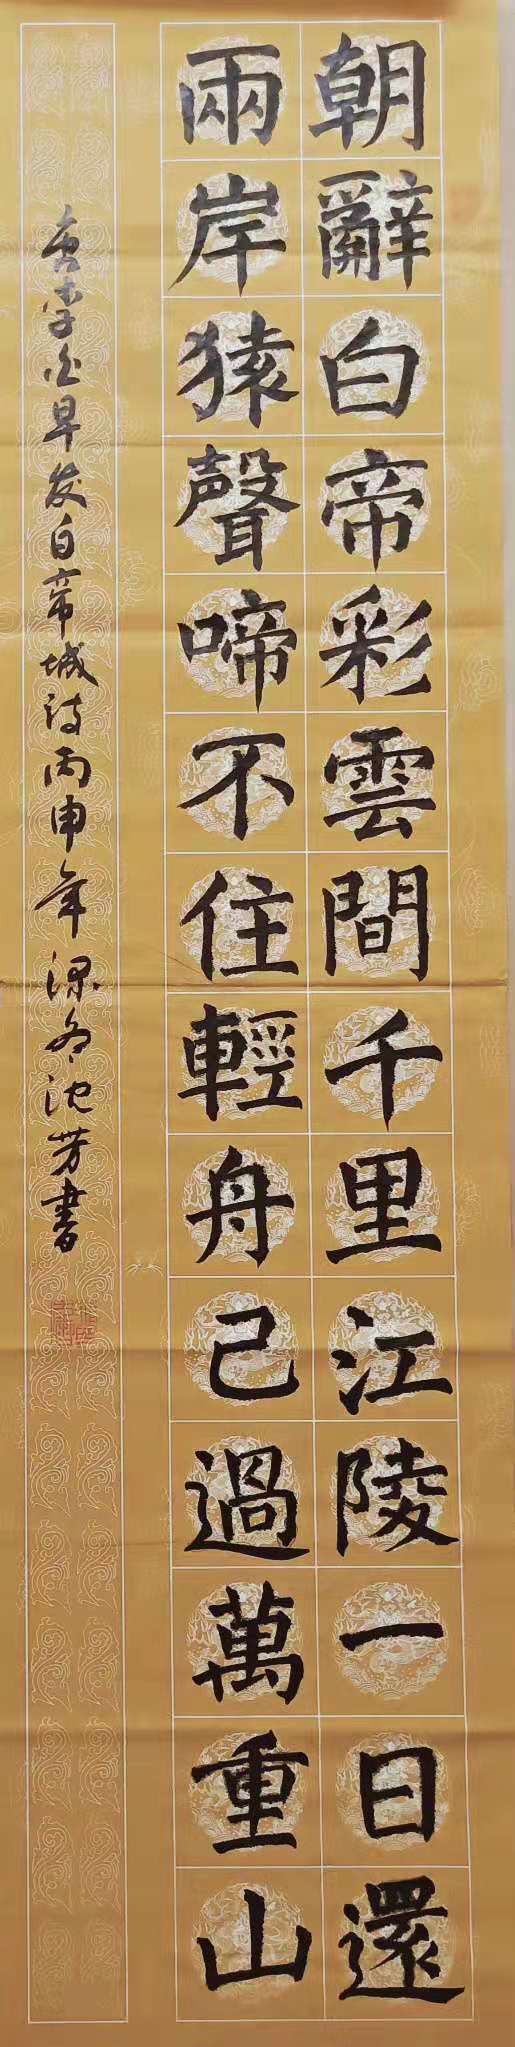 朝辭白帝彩雲間千里江陵一日還
兩岸猿聲啼不住輕舟已過萬重山
唐李白早发白帝城诗丙申年深冬沈芳書